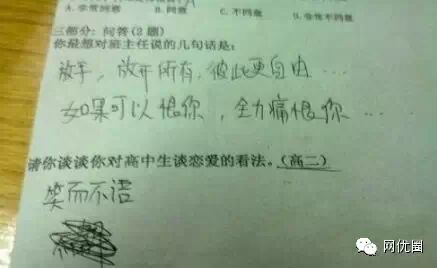 A. 非常同意 B. 同意 C. 不同意 D. 非常不同意
三部分: 问答(2题)
你最想对班主任说的几句话是:
放手，放开所有，彼此更自由…
如果可以恨你，全力痛恨你…
请你谈谈你对高中生谈恋爱的看法。(高二)
笑而不语
网优圈